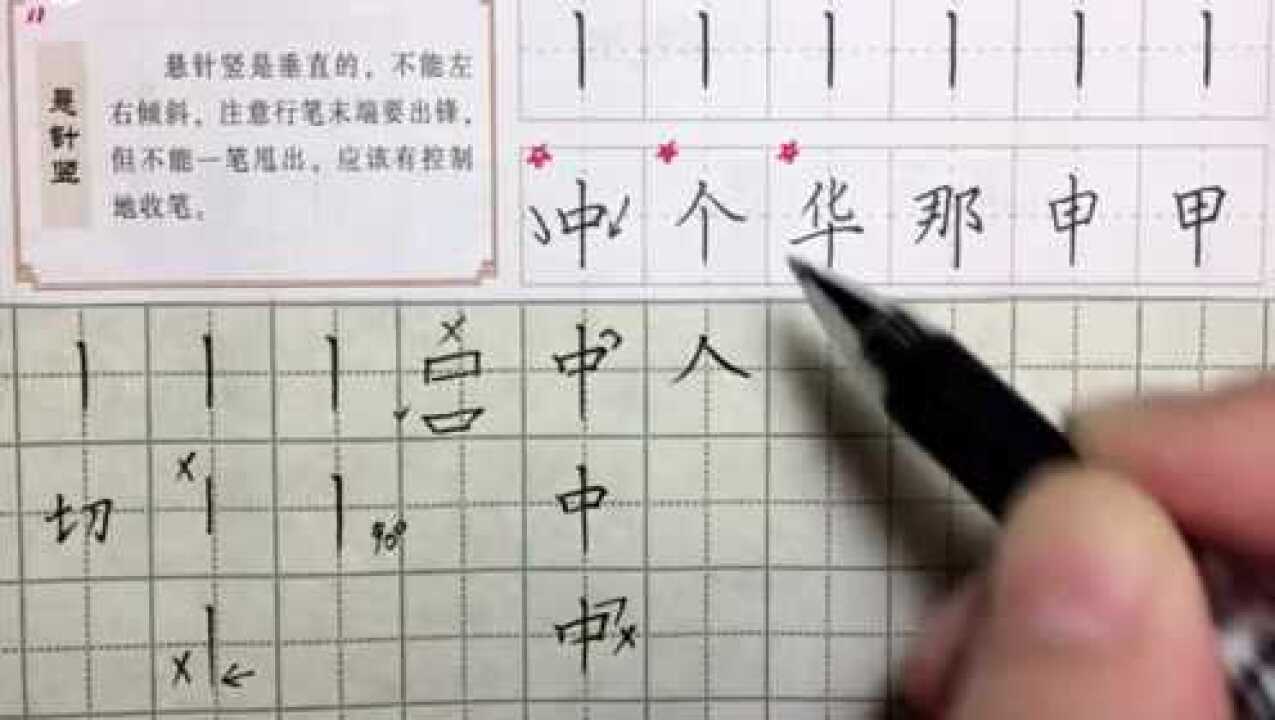 悬针竖
悬针竖是垂直的，不能左
右倾斜，注意行笔末端要出锋，
但不能一笔甩出，应该有控制
地收笔。
中 个 华 那 申 甲
x 中 人
切 x 90° 中
x 中 x